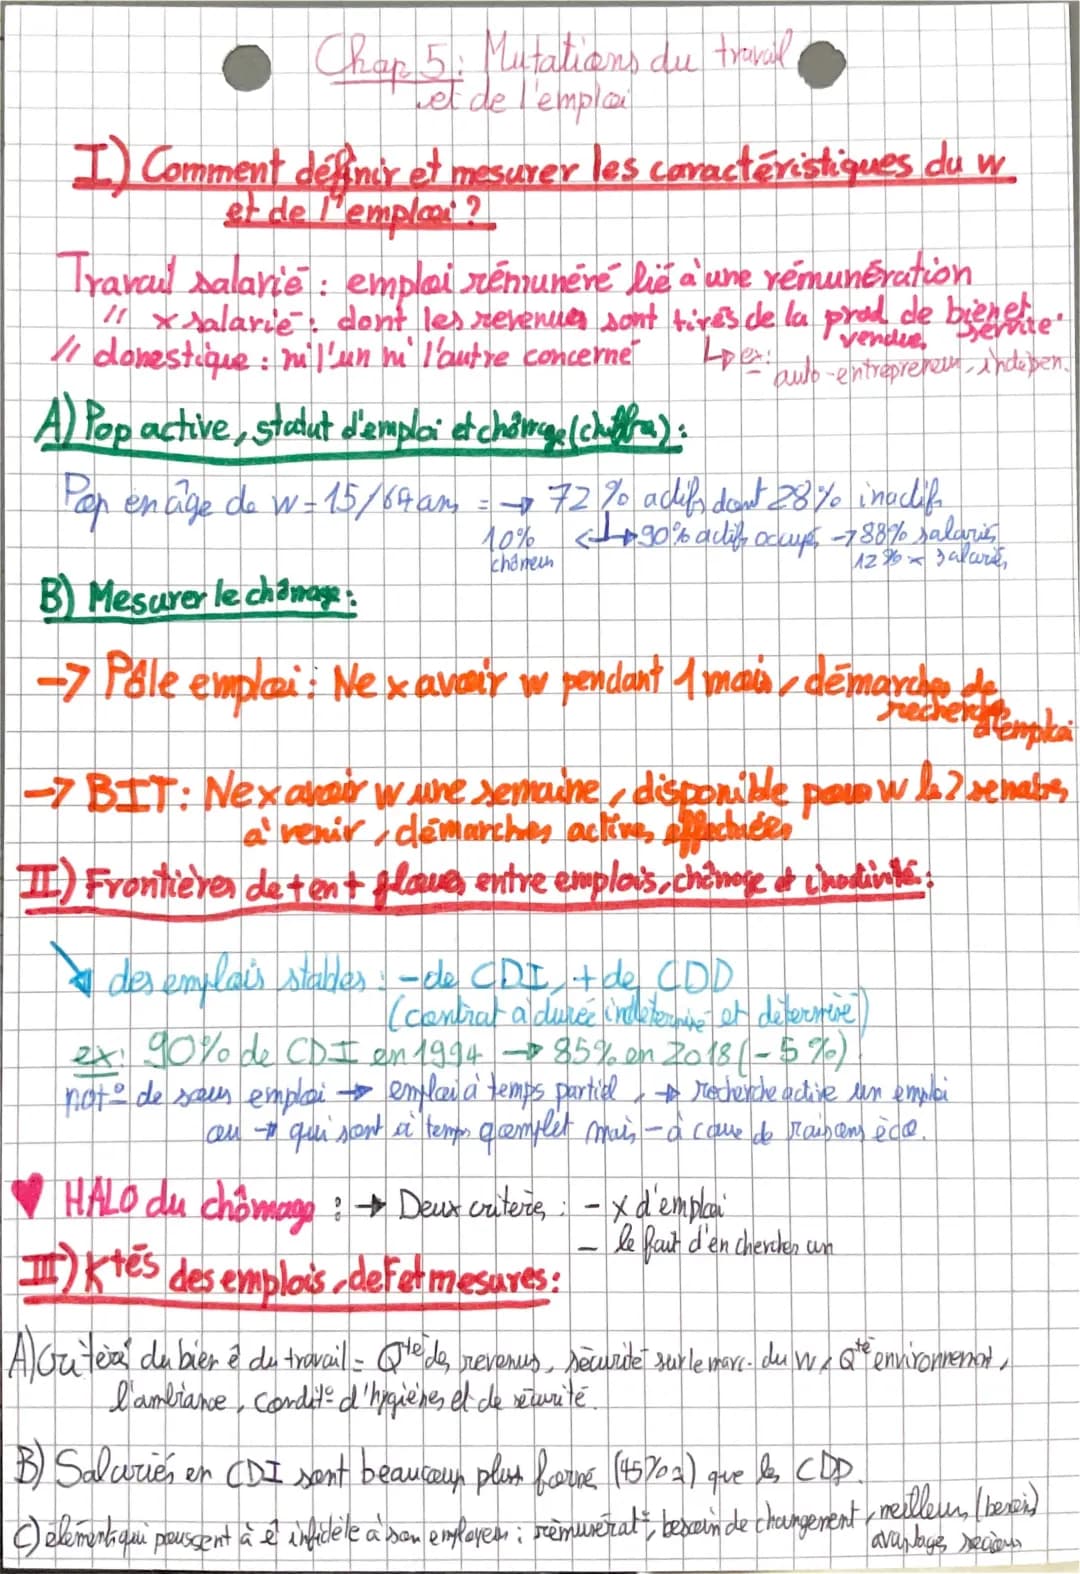 Chap 5 : Mutations du travail
et de l'emploi
I) Comment définir et mesurer les caractéristiques du w
et de l'emploi ?
Travail salarié : emploi rémunéré lié à une rémunération
// x salarié : dont les revenus sont tirés de la prod de bien et service
vendue
// domestique : ni l'un ni l'autre concerné
↳ ex : auto-entrepreneur, indépen.
A) Pop active, statut d'emploi et chômage (chiffra) :
Pop en âge de w = 15/64 ans = → 72 % actifs dont 28% inactifs
10% chômeurs ↔ 90% actifs occupés → 88% salariés
12 % x salariés
B) Mesurer le chômage :
→ Pôle emploi : Ne x avoir w pendant 1 mois, démarches de
recherches
d'emploi
→ BIT : Ne x avoir w une semaine, disponible pour w les 2 semaines
à venir, démarches actives effectuées
II) Frontières de + en + floues entre emplois, chômage et inactivité :
↘ des emplois stables : - de CDI, + de CDD
(contrat à durée indéterminé et déterminé)
ex : 90% de CDI en 1994 → 85% en 2018 (-5%)
not° de sous emploi → emploi à temps partiel, → recherche active un emploi
ou → qui sont à temps complet mais - à cause de raisons éco.
♥ HALO du chômage : → Deux critères : - x d'emploi
- le fait d'en chercher un
III) Ktés des emplois, def et mesures :
A) Critères du bien ê du travail = Qté des revenus, sécurité sur le marc. du w, Qté environnement,
l'ambiance, condit° d'hygiènes et de sécurité.
B) Salariés en CDI sont beaucoup plus formé (45% ) que les CDD.
C) éléments qui poussent à ê infidèle à son employeur : rémunérat°, besoin de changement, meilleurs (besoin)
avantages sociaux